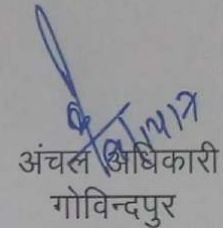 अंचल अधिकारी
गोविन्दपुर